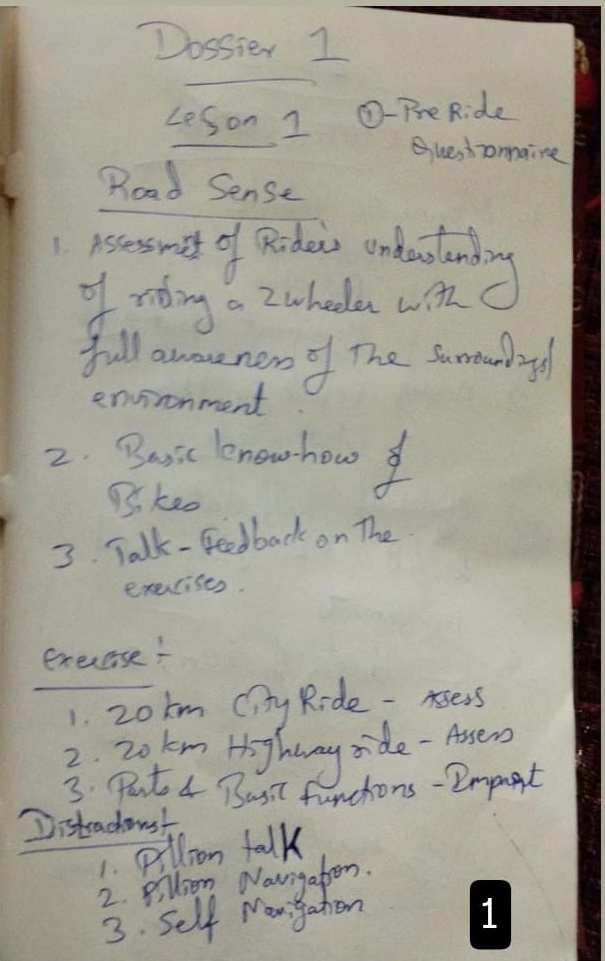 Dossier 1
Leson 1 ①-Pre Ride
Questionnaire
Road Sense
1. Assessmet of Rider's understanding
of riding a 2 wheeler with
full awareness of The Surroundings/
environment.
2. Basic know-how of
Bikes
3. Talk - Feedback on The
exercises.
Exercise :-
1. 20 km City Ride - Assess
2. 20 km Highway ride - Assess
3. Parts & Basic functions - Impart
Distractions:-
1. Pillion talk
2. Pillion Navigation.
3. Self Navigation
1